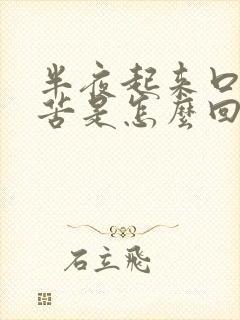 半夜起来口
苦是怎么回
石立飛